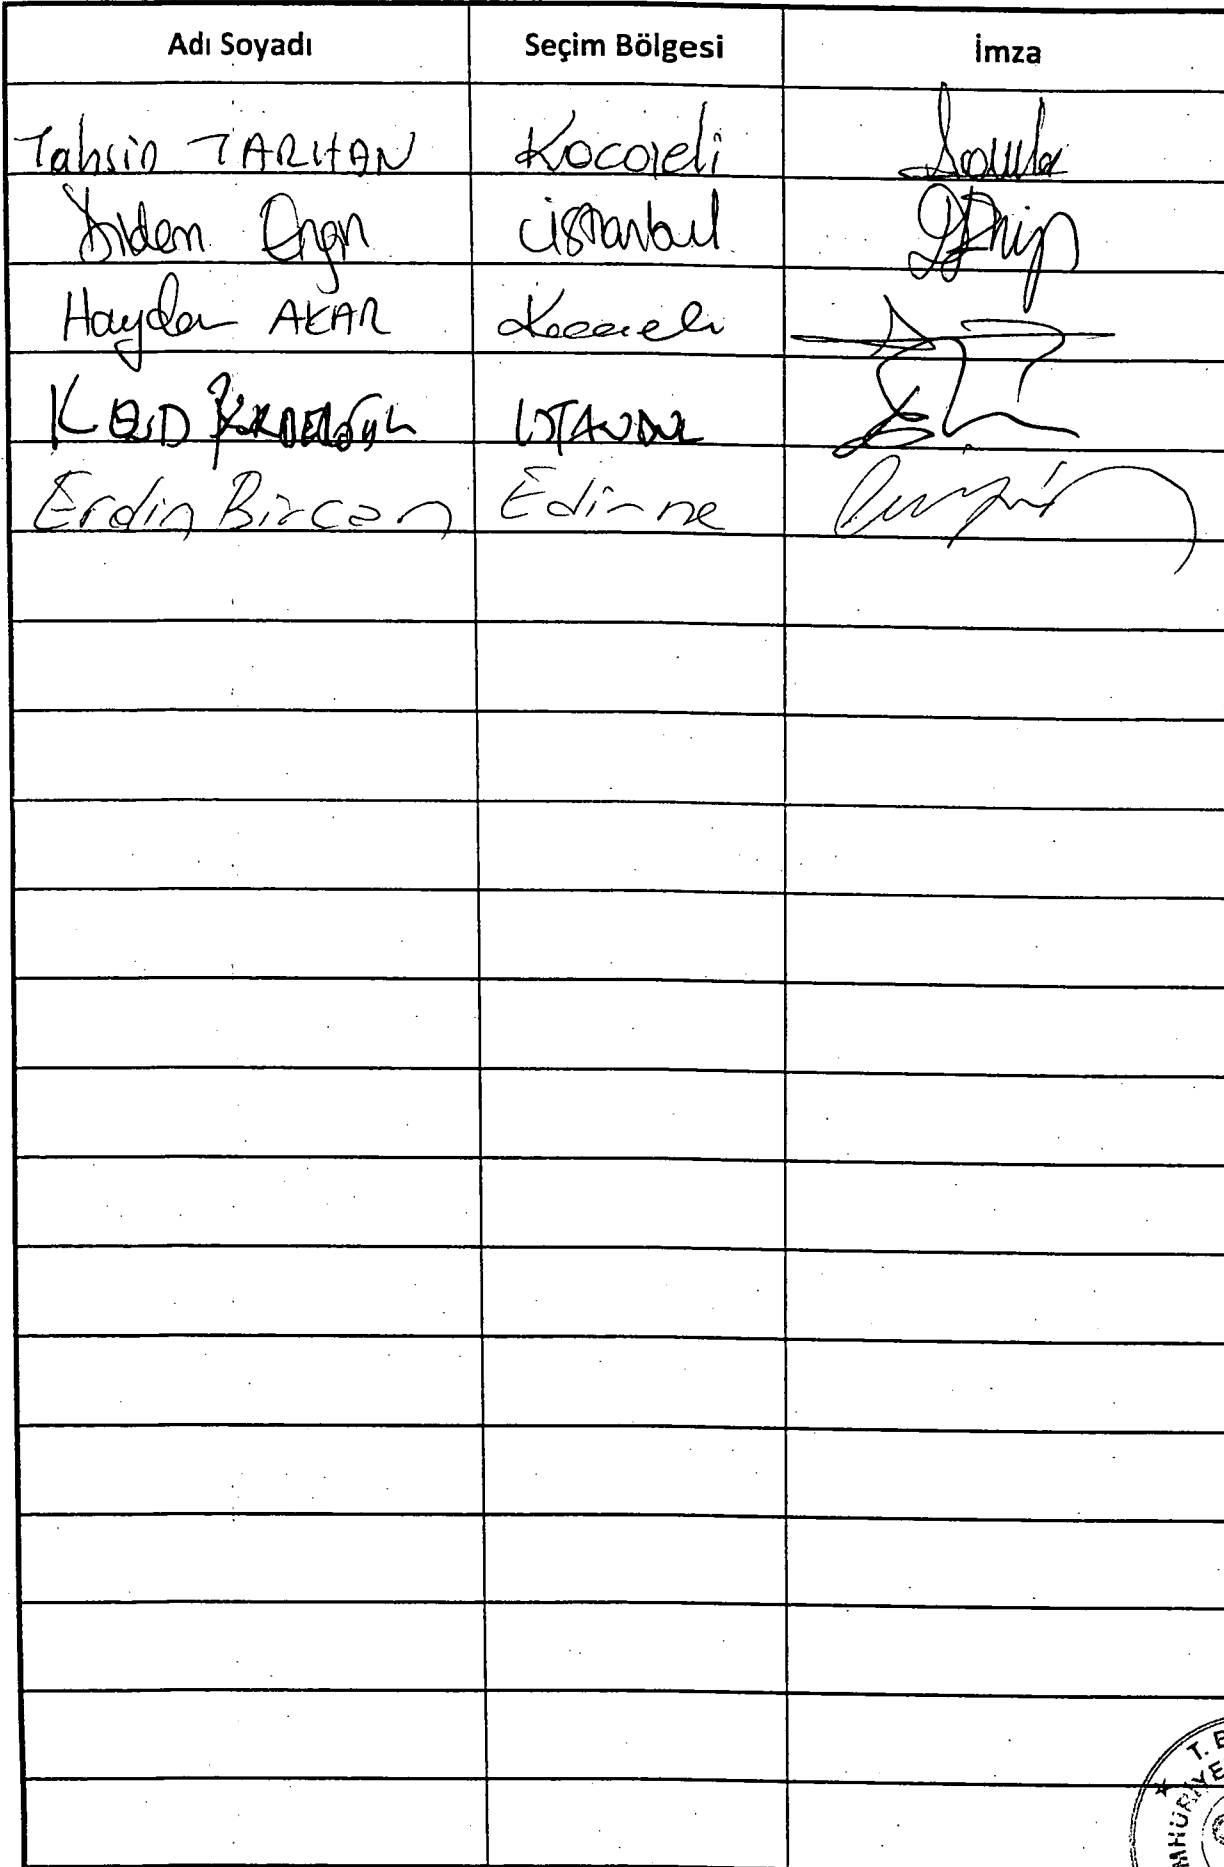 Adı Soyadı Seçim Bölgesi İmza
Tahsin TARHAN Kocaeli
Didem Engin istanbul
Haydar AKAR Kocaeli
İSTANBUL
Erdin Bircan Edirne
T. B